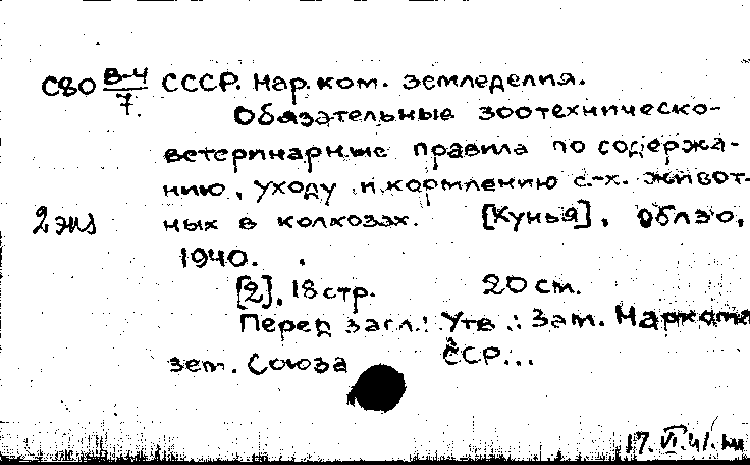 С80 В-4/7 СССР. Нар. ком. земледелия.
Обязательные зоотехническо-
ветеринарные правила по содержа-
нию, уходу и кормлению с.-х. живот-
2 экз ных в колхозах. [Кунья], Облзо,
1940.
[2], 18 стр. 20 см.
Перед загл.: Утв.: Зам. Наркома
зем. Союза ССР...
17.VI.41.